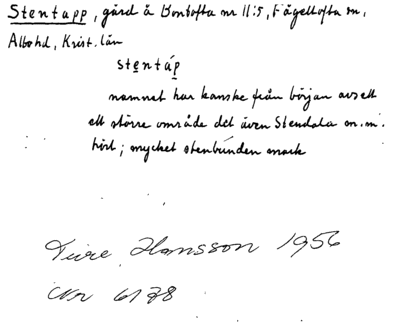 Stentapp, gård å Bontofta nr 11:5, Fågeltofta sn,
Albo hd, Krist. län
stentáp
namnet har kanske från början avsett
ett större område dit även Stendala m.m.
hört; mycket stenbunden mark
Ture Hansson 1956
Nr 6178